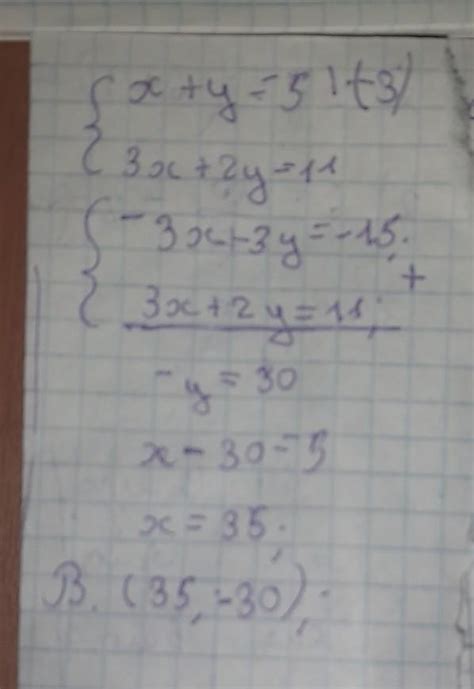 x + y = 5 | (-3)
3x + 2y = 11
-3x - 3y = -15;
+
3x + 2y = 11;
-y = 30
x - 30 = 5
x = 35;
В. (35, -30);